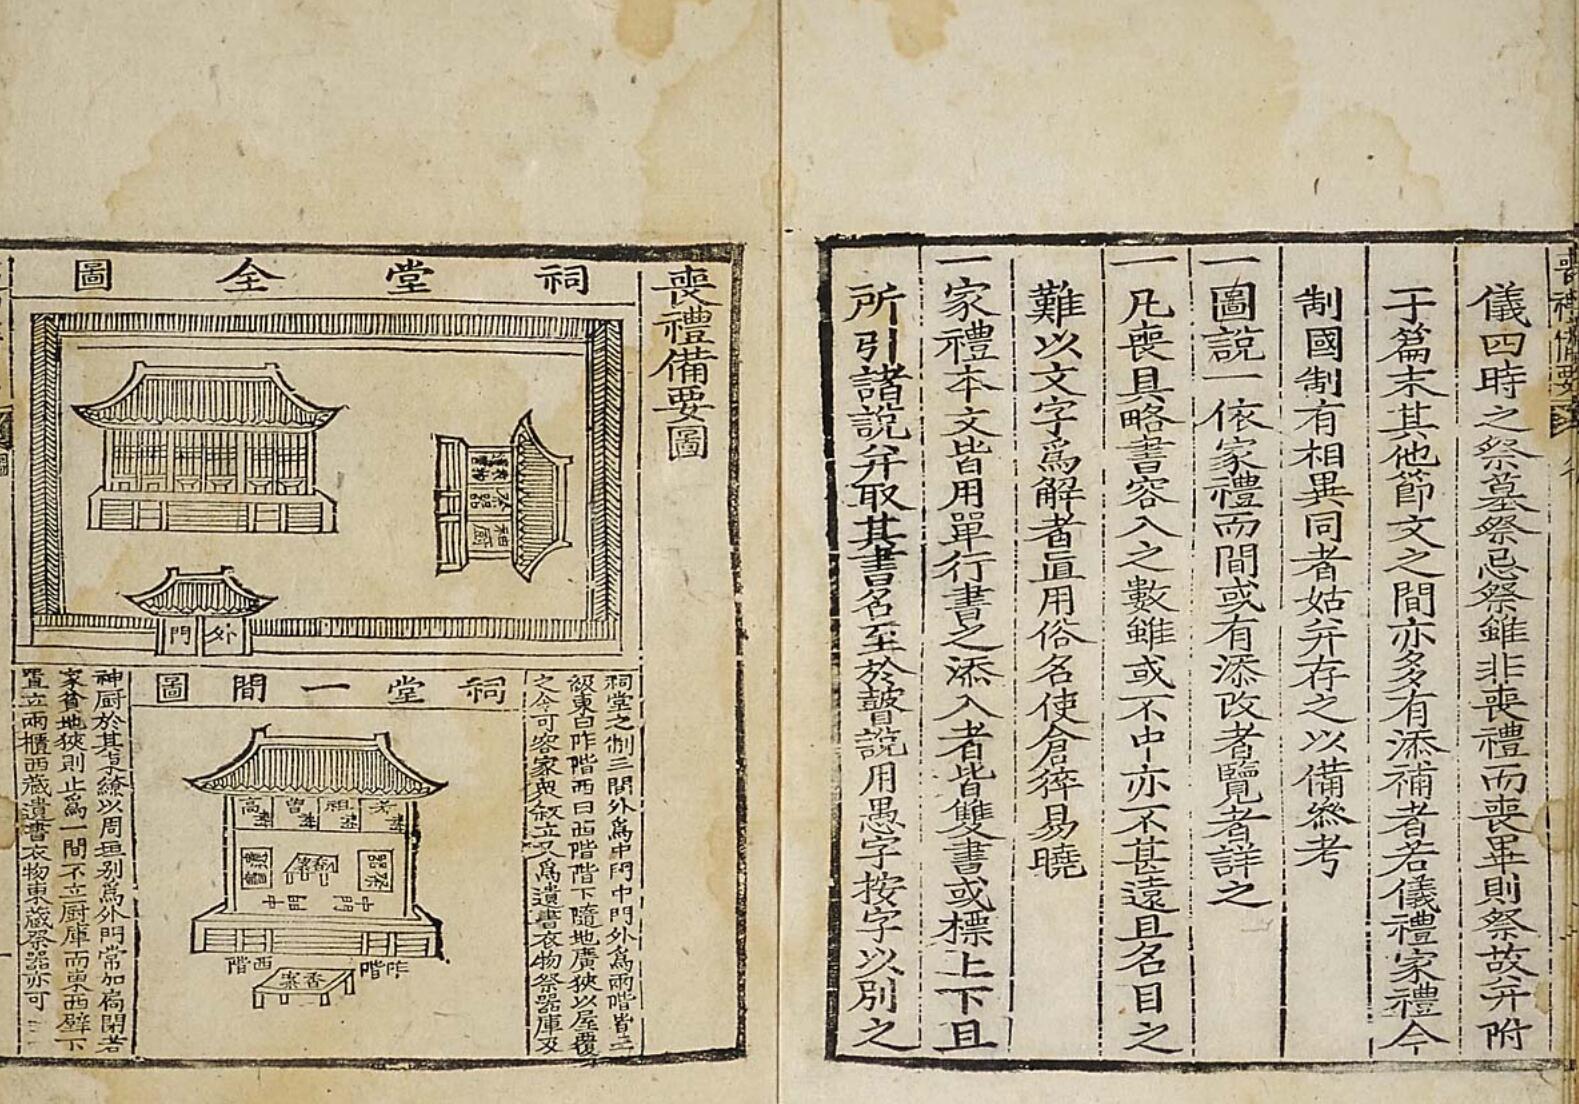 喪禮備要
儀四時之祭墓祭忌祭雖非喪禮而喪畢則祭故幷附
于篇末其他節文之間亦多有添補者若儀禮家禮今
制國制有相異同者姑幷存之以備參考
一圖說一依家禮而間或有添改者覽者詳之
一凡喪具略書容入之數雖或不中亦不甚遠且名目之
難以文字爲解者直用俗名使倉猝易曉
一家禮本文皆用單行書之添入者皆雙書或標上下且
所引諸說幷取其書名至於瞽說用愚字按字以別之
喪禮備要圖
祠堂全圖
祭器
神廚
外門
祠堂之制三間外爲中門中門外爲兩階皆三
級東曰阼階西曰西階階下隨地廣狹以屋覆
之令可容家衆敍立又爲遺書衣物祭器庫及
祠堂一間圖
考
祖
曾
高
祭器
香案
遺書
中門
中門
阼階
西階
香案
神廚於其東繚以周垣別爲外門常加扃閉若
家貧地狹則止爲一間不立廚庫而東西壁下
置立兩櫃西藏遺書衣物東藏祭器亦可